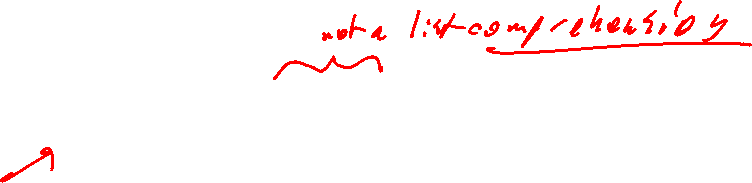 not a list comprehension